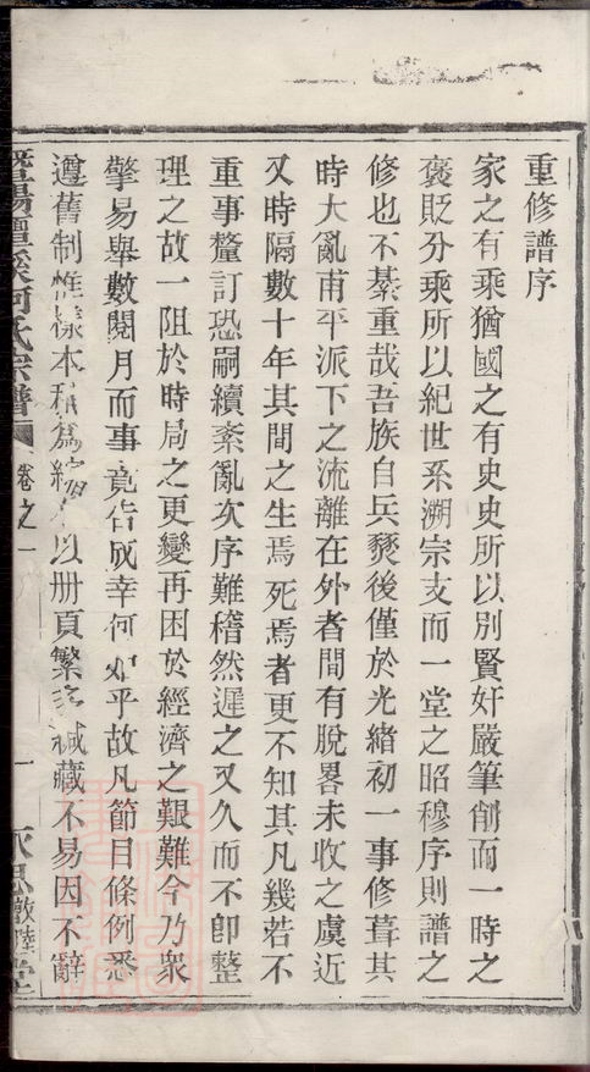 重修譜序
家之有乘猶國之有史史所以別賢奸嚴筆削而一時之
褒貶分乘所以紀世系溯宗支而一堂之昭穆序則譜之
修也不綦重哉吾族自兵燹後僅於光緒初一事修葺其
時大亂甫平派下之流離在外者間有脫畧未收之虞近
又時隔數十年其間之生焉死焉者更不知其凡幾若不
重事釐訂恐嗣續紊亂次序難稽然遲之又久而不卽整
理之故一阻於時局之更變再困於經濟之艱難今乃衆
擎易舉數閱月而事竟告成幸何如乎故凡節目條例悉
遵舊制惟樣本稍爲縮小以册頁繁多緘藏不易因不辭
何氏宗譜 卷之一 一 永思敦睦堂